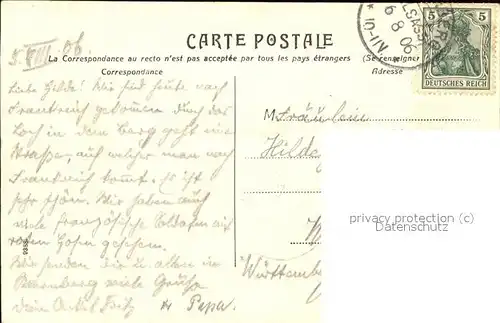 CARTE POSTALE
La Correspondance au recto n'est pas acceptée par tous les pays étrangers (Se renseigner
Correspondance
Adresse
5
5
DEUTSCHES REICH
* 10-11 V.
6 8 06
ELSASS
5. VIII. 06.
Liebe Hilde! Wir sind heute nach
Frankreich gekommen durch das
Loch in dem Berg geht eine
Straße, auf welcher man nach
Frankreich kommt. Es ist
sehr schön. Wir haben auch
viele französische Soldaten mit
roten Hosen gesehen.
Wir senden dir u. allen in
viele Grüße
dein Onkel Fritz
u Papa.
Fräulein
Hildeg
Württemb
privacy protection (c)
www.oldthing.de